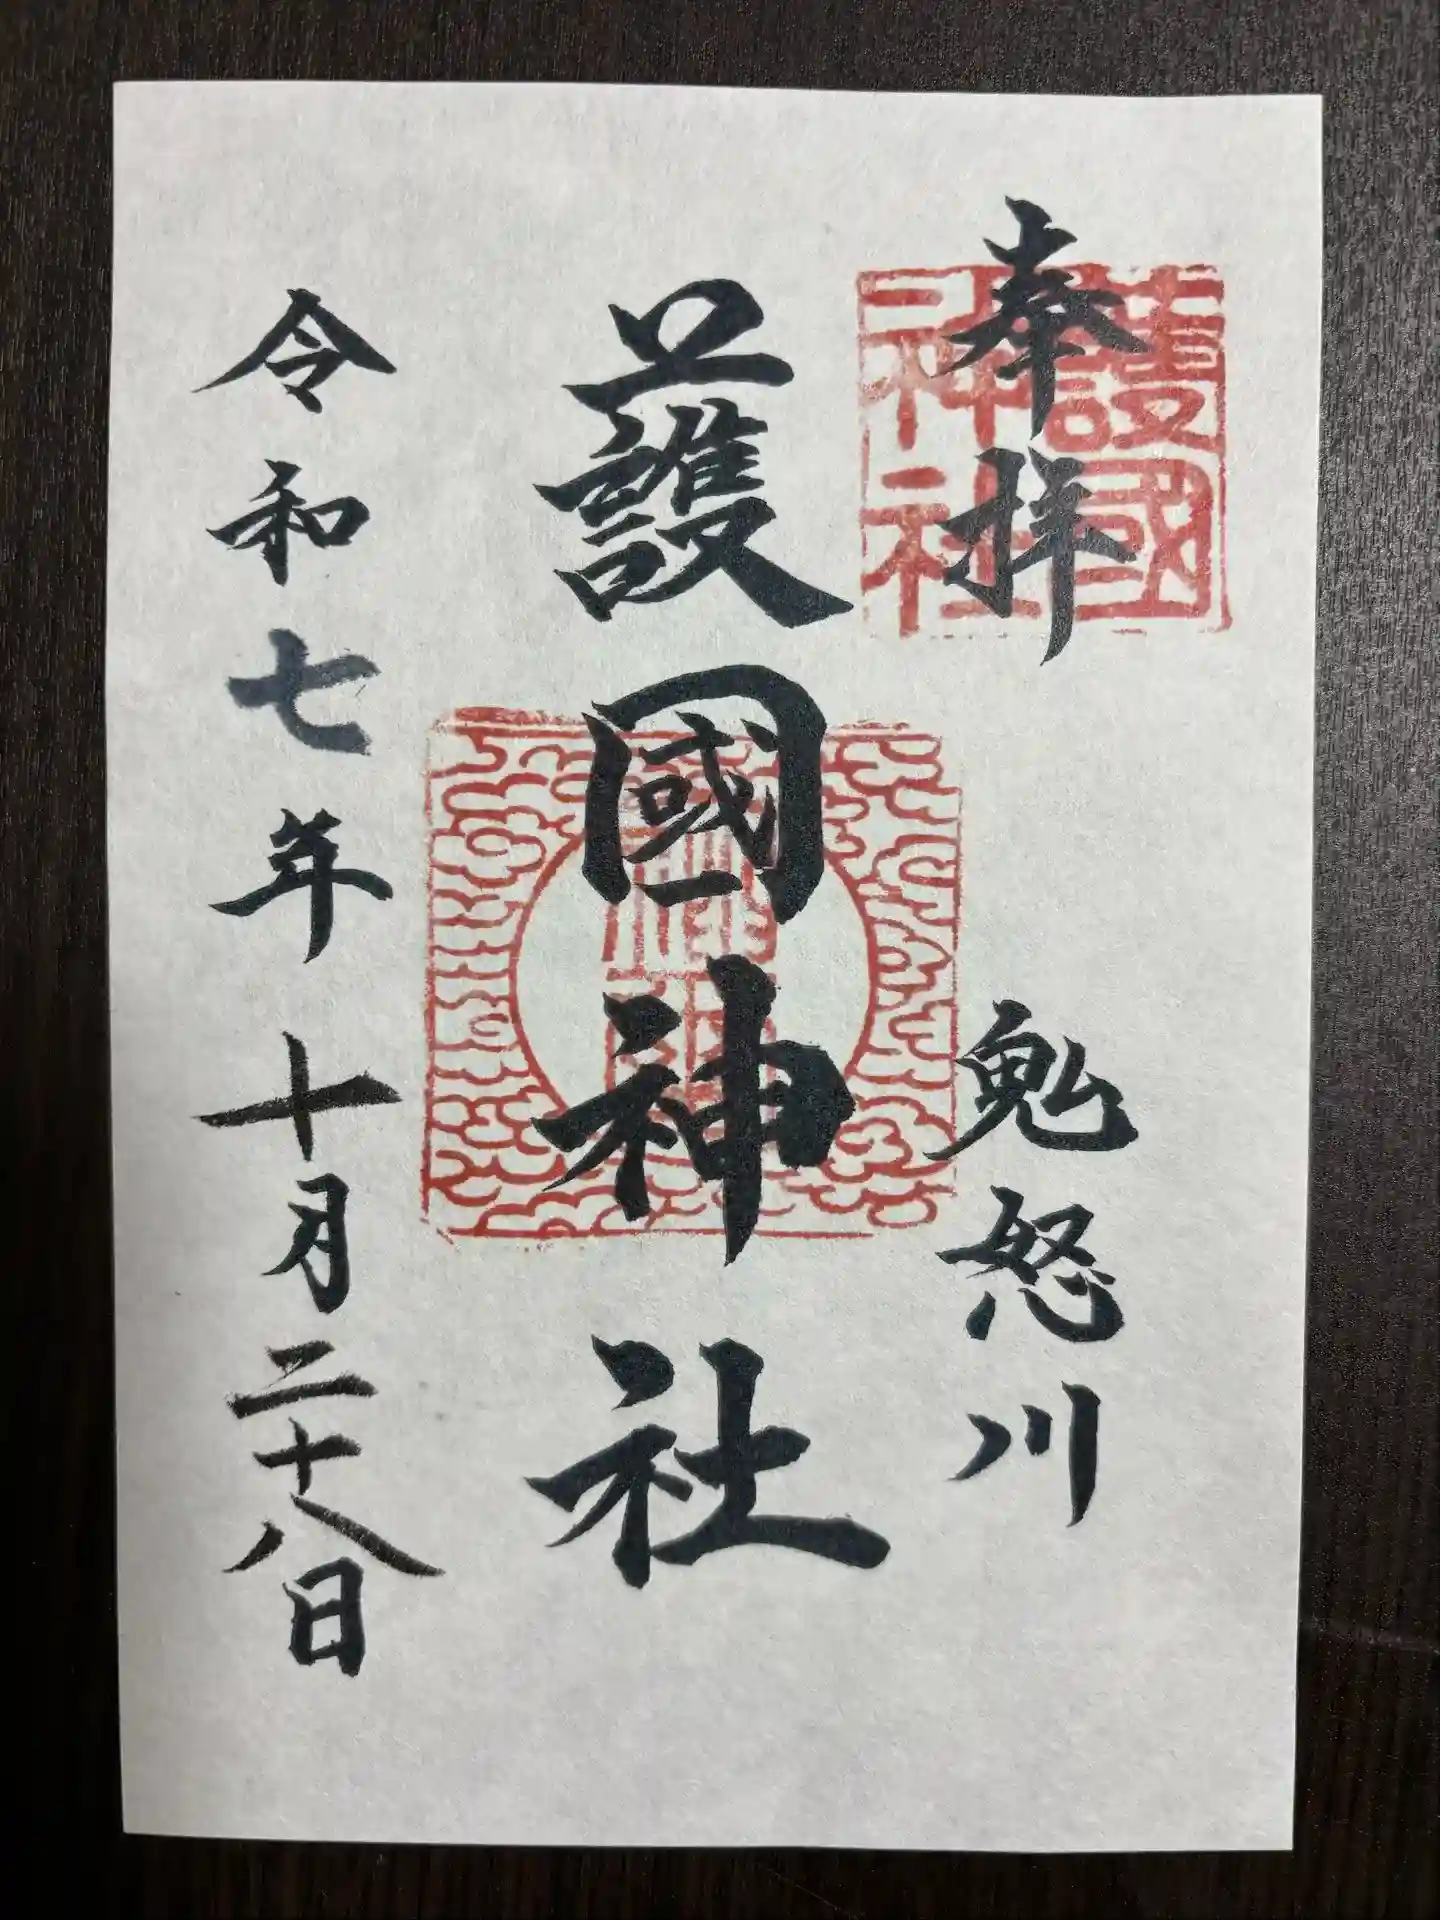 奉拝
鬼怒川
護國
神社
護國神社
令和七年十月二十八日